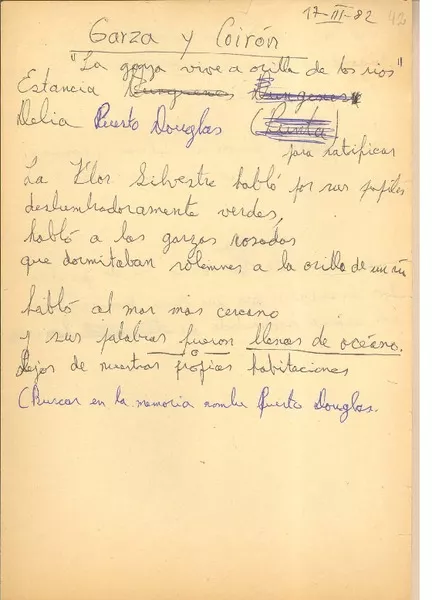 17-III-82 42
Garza y Coirón
"La garza vive a orilla de los ríos"
Estancia
Delia Puerto Douglas (Punta)
para ratificar
La Flor Silvestre habló por sus pupilas
deslumbradoramente verdes,
habló a las garzas rosadas
que dormitaban solemnes a la orilla de un río
habló al mar más cercano
y sus palabras fueron llenas de océano.
lejos de nuestras propias habitaciones
(Buscar en la memoria nombre Puerto Douglas.